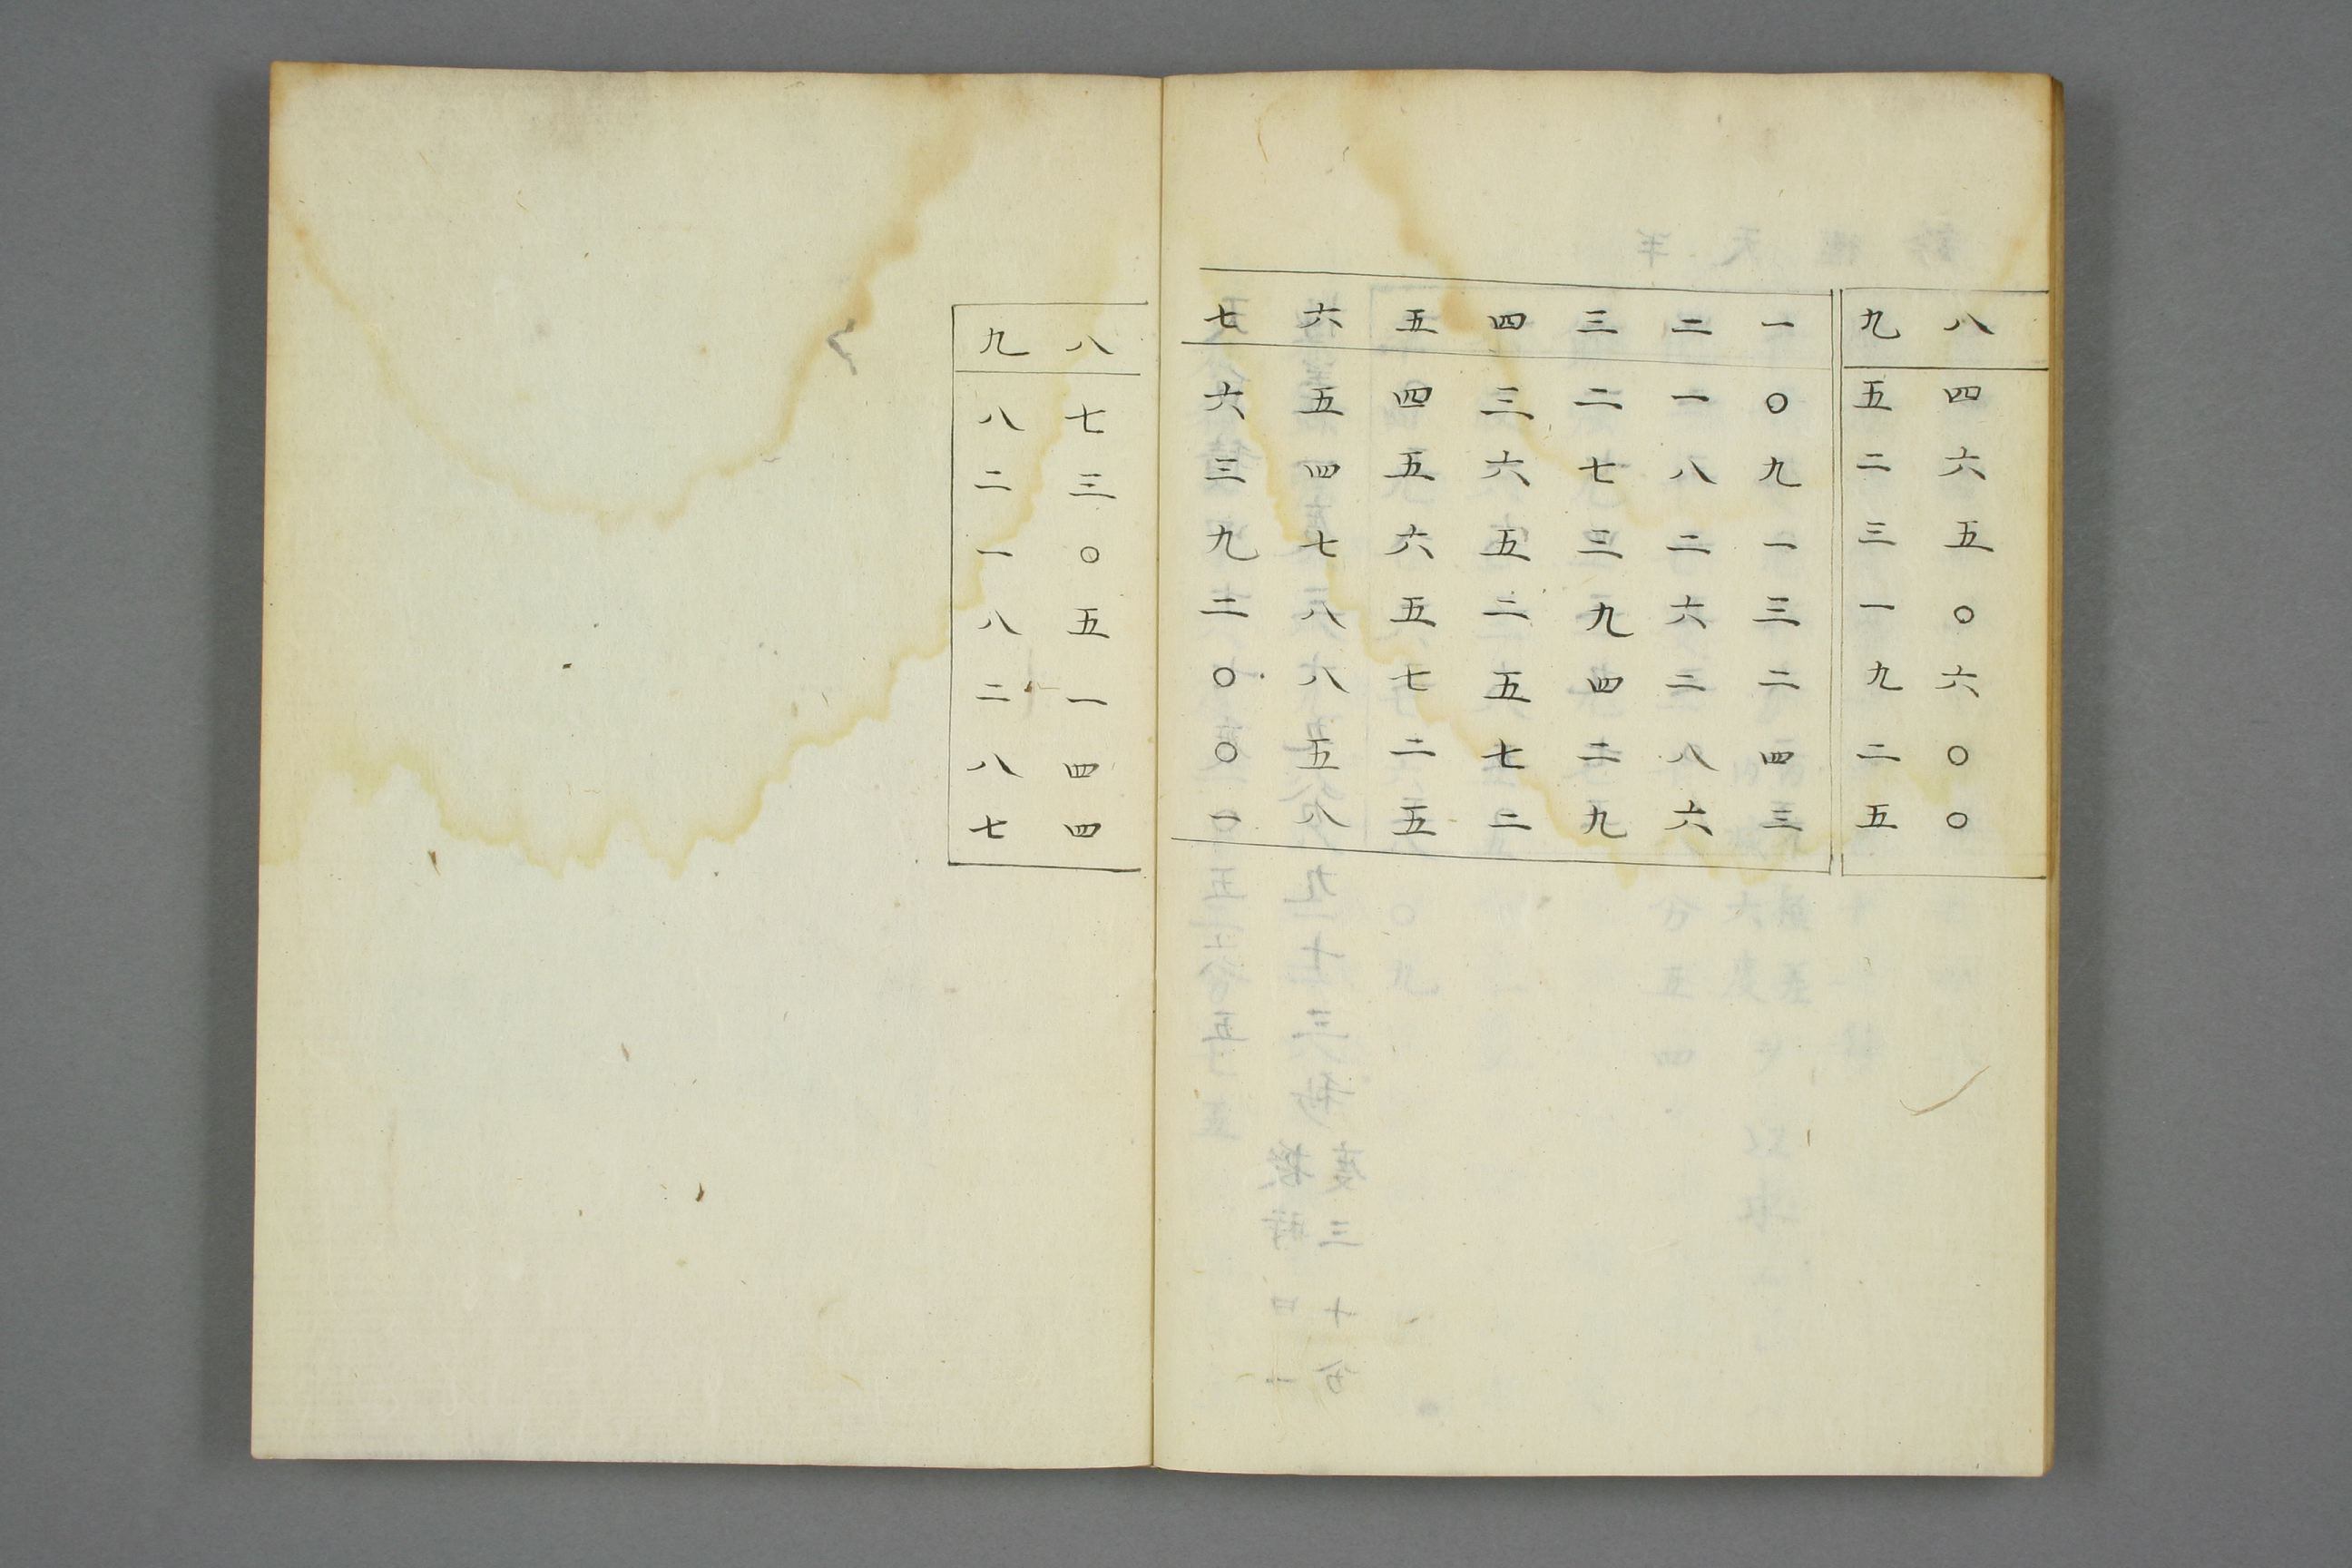 八四六五〇六〇〇
九五二三一九二五
一〇九一三二四三
二一八二六二八六
三二七三九四二九
四三六五二五七二
五四五六五七二五
六五四七八八五八
七六三九二〇〇一
八七三〇五一四四
九八二一八二八七